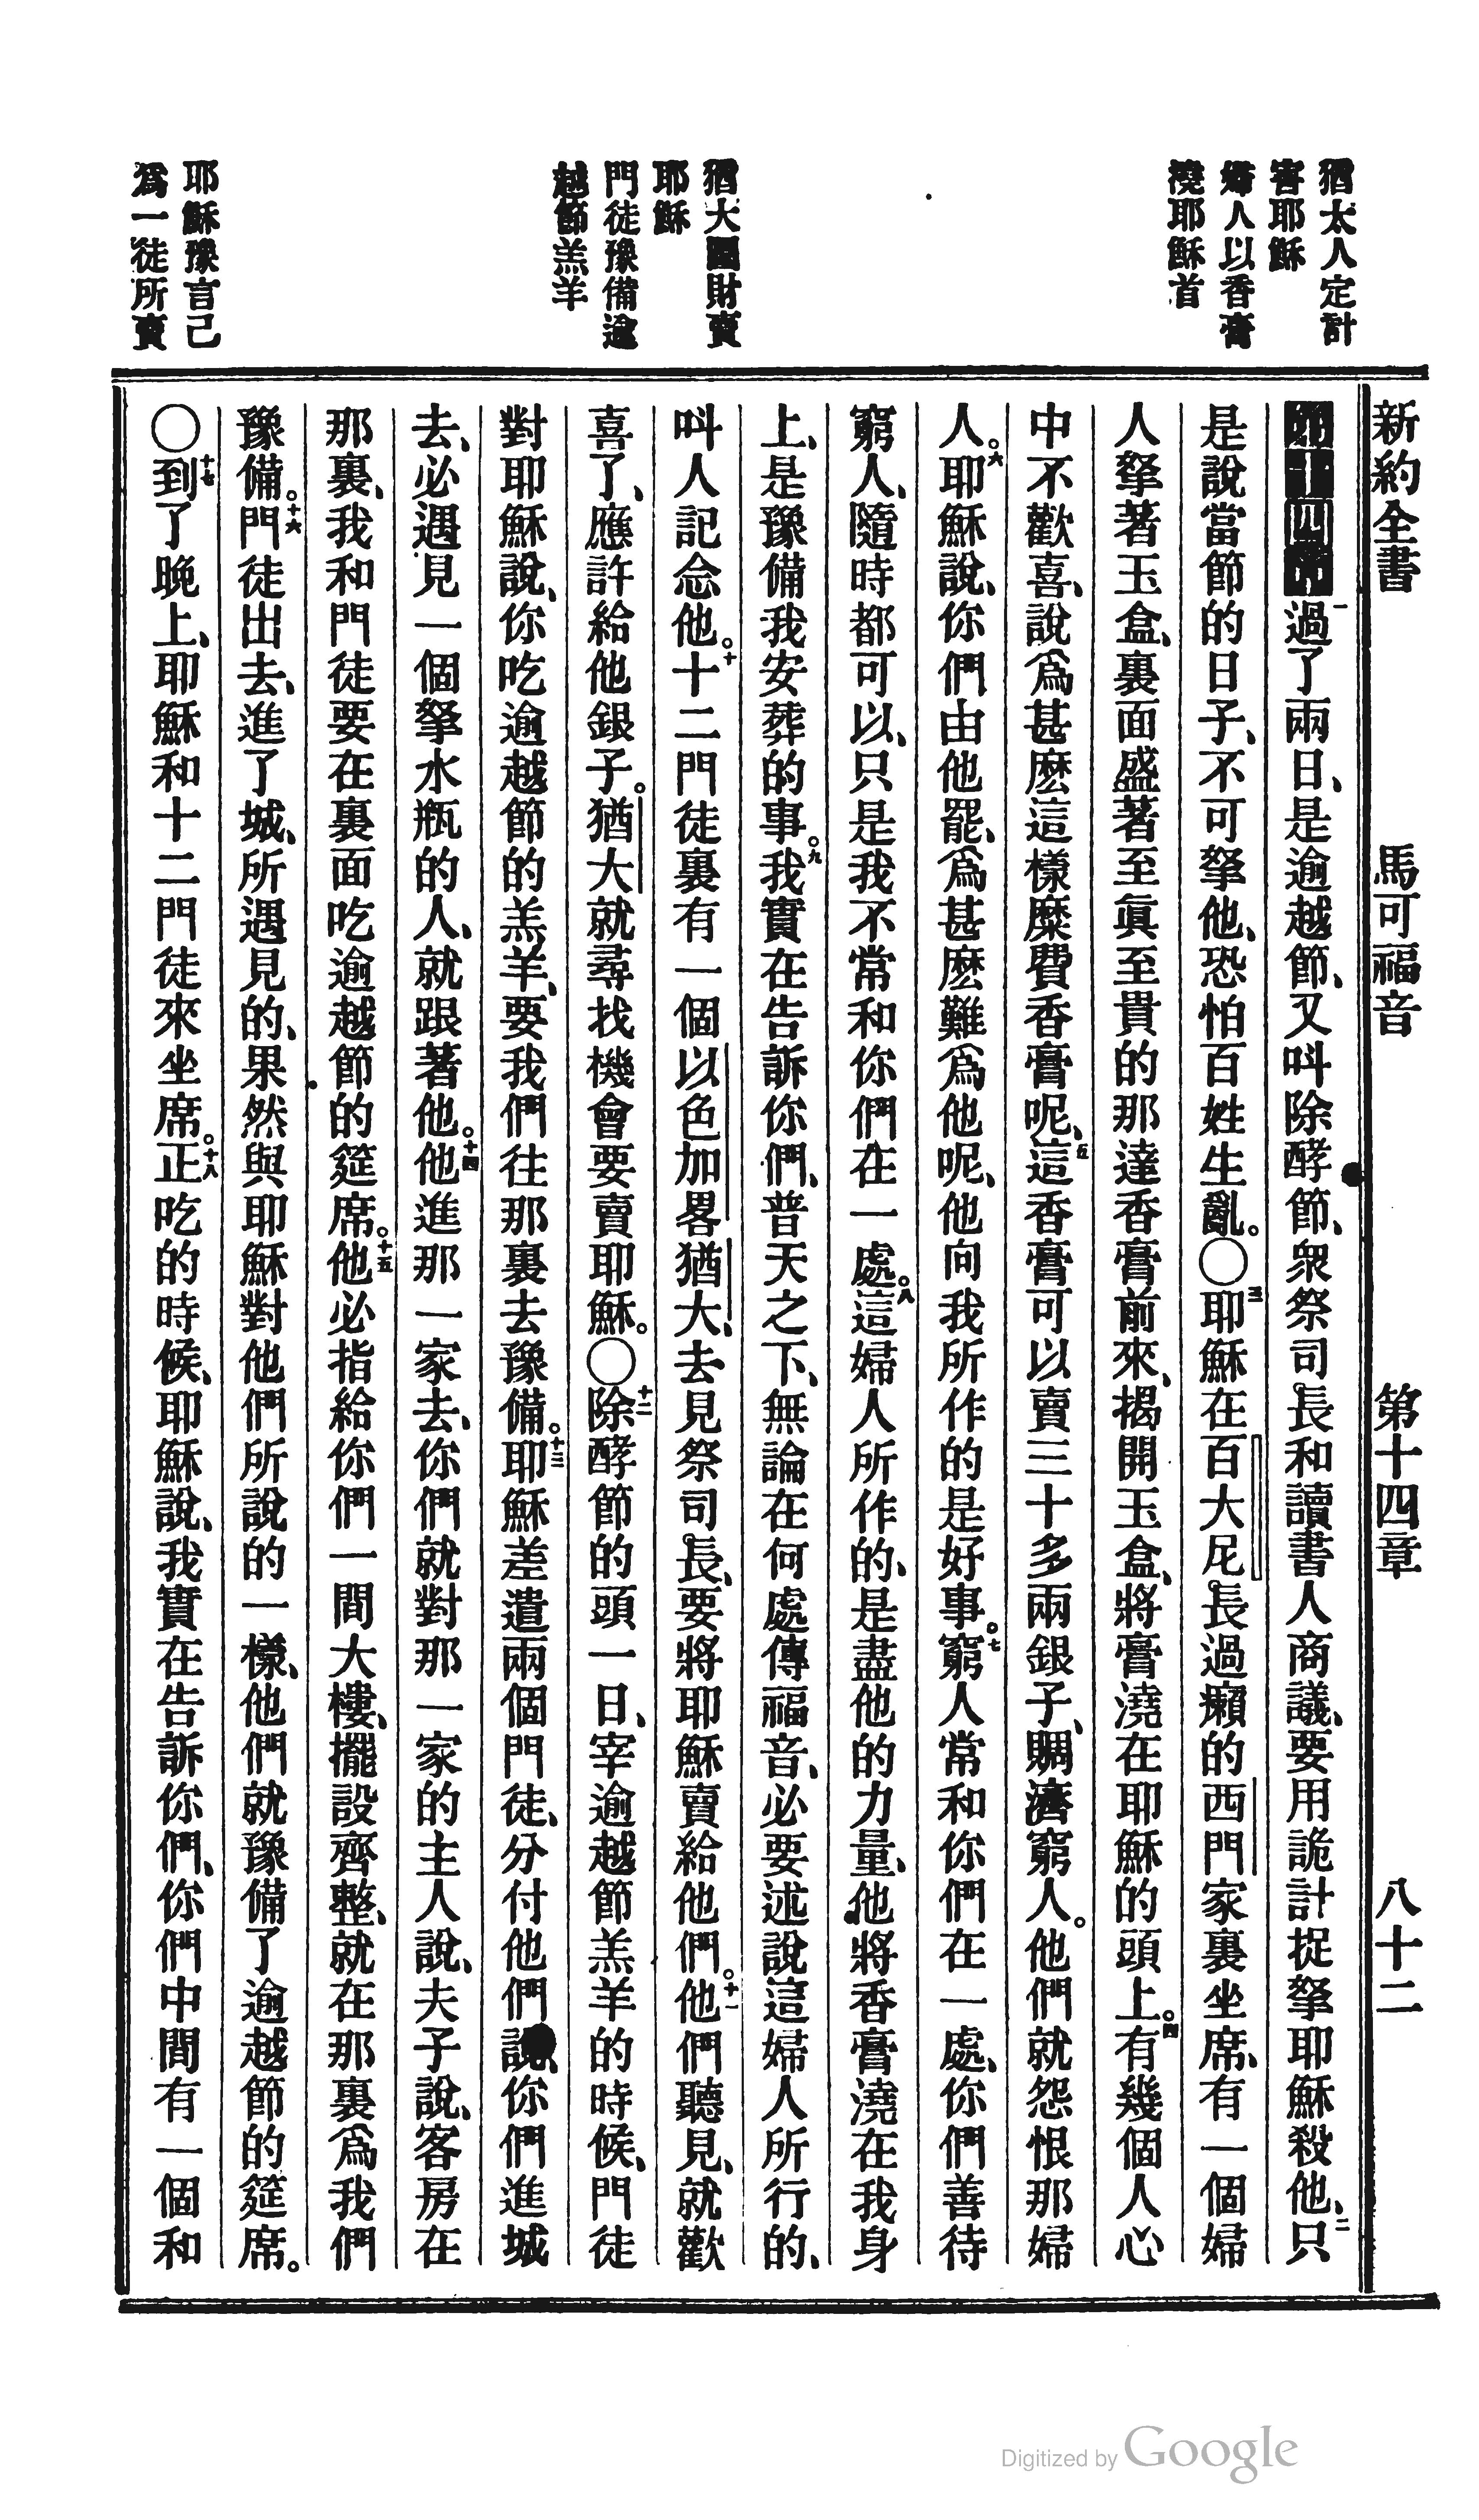 新約全書　馬可福音　第十四章　八十二
猶太人定計
害耶穌
婦人以香膏
澆耶穌首
猶大圖財賣
耶穌
門徒豫備逾
越節羔羊
耶穌豫言己
爲一徒所賣
第十四章一過了兩日、是逾越節、又呌除酵節、衆祭司長和讀書人商議、要用詭計捉拏耶穌殺他、二只
是說當節的日子、不可拏他、恐怕百姓生亂。〇三耶穌在百大尼長過癩的西門家裏坐席、有一個婦
人拏著玉盒、裏面盛著至眞至貴的那達香膏前來、揭開玉盒、將膏澆在耶穌的頭上。四有幾個人心
中不歡喜、說爲甚麽這樣糜費香膏呢、五這香膏可以賣三十多兩銀子、賙濟窮人。他們就怨恨那婦
人。六耶穌說、你們由他罷、爲甚麽難爲他呢、他向我所作的是好事。七窮人常和你們在一處、你們善待
窮人、隨時都可以、只是我不常和你們在一處。八這婦人所作的、是盡他的力量、他將香膏澆在我身
上、是豫備我安葬的事。九我實在告訴你們、普天之下、無論在何處傳福音、必要述說這婦人所行的、
呌人記念他。十十二門徒裏有一個以色加畧猶大、去見祭司長、要將耶穌賣給他們。十一他們聽見、就歡
喜了、應許給他銀子。猶大就尋找機會要賣耶穌。〇十二除酵節的頭一日、宰逾越節羔羊的時候、門徒
對耶穌說、你吃逾越節的羔羊、要我們往那裏去豫備。十三耶穌差遣兩個門徒、分付他們說、你們進城
去、必遇見一個拏水瓶的人、就跟著他。十四他進那一家去、你們就對那一家的主人說、夫子說、客房在
那裏、我和門徒要在裏面吃逾越節的筵席。十五他必指給你們一間大樓、擺設齊整、就在那裏爲我們
豫備。十六門徒出去、進了城、所遇見的、果然與耶穌對他們所說的一樣、他們就豫備了逾越節的筵席。
〇十七到了晚上、耶穌和十二門徒來坐席。十八正吃的時候、耶穌說、我實在告訴你們、你們中間有一個和
Digitized by Google